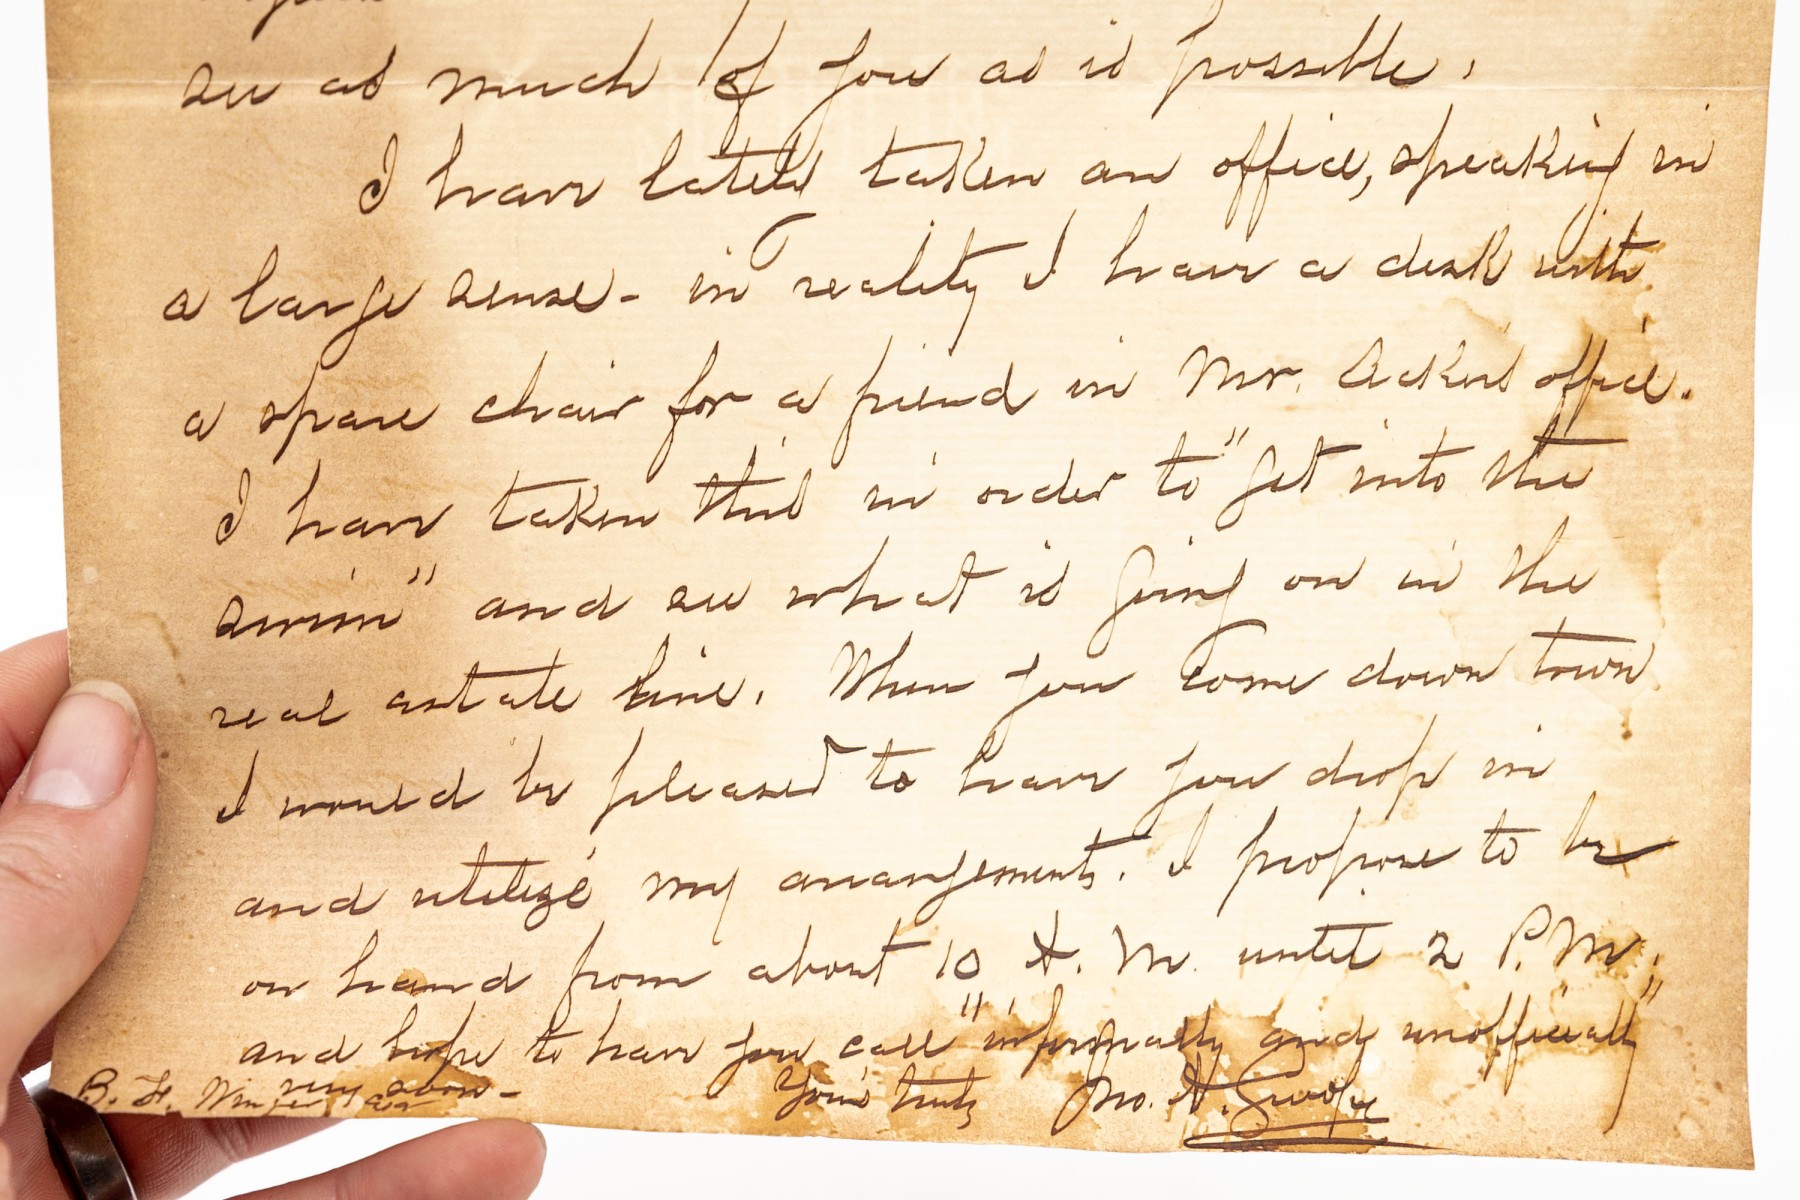 see as much of you as is possible.
I have lately taken an office, speaking in
a large sense - in reality I have a desk with
a spare chair for a friend in Mr. office.
I have taken this in order to "get into the
swim" and see what is going on in the
real estate line. When you come down town
I would be pleased to have you drop in
and utilize my arrangements. I propose to be
on hand from about 10 A. M. until 2 P.M.
and hope to have you call "informally and unofficially"
very soon -
Yours truly Jno. H.
B. F.